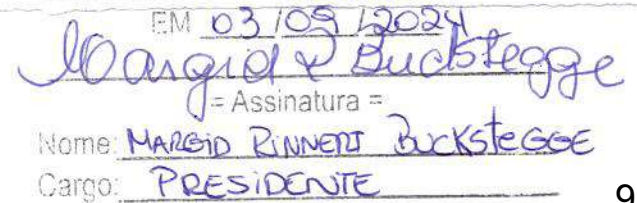 EM 03/09/2024
Margid R Buckstegge
= Assinatura =
Nome: MARGID RINNERT BUCKSTEGGE
Cargo: PRESIDENTE
9